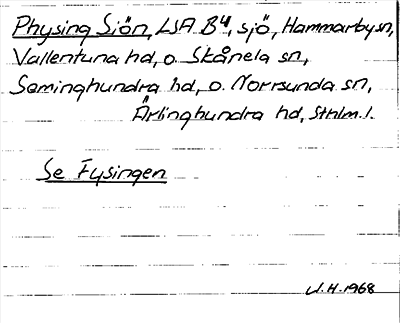 Physing Siön, LSA B4, sjö, Hammarby sn,
Vallentuna hd, o. Skånela sn,
Seminghundra hd, o. Norrsunda sn,
Ärlinghundra hd, Sthlm. l.
Se Fysingen
W.H. 1968